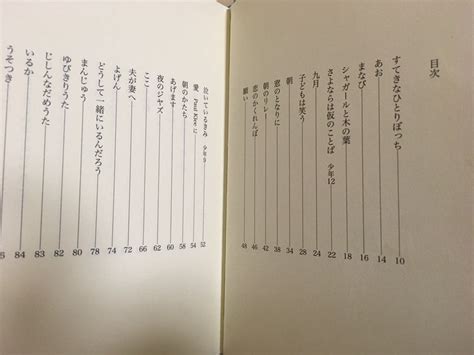 目次
すてきなひとりぼっち 10
あお 14
まなび 16
シャガールと木の葉 18
さよならは仮のことば 少年12 22
九月 24
子どもは笑う 28
朝 34
窓のとなりに 38
朝のリレー 42
恋のかくれんぼ 46
願い 48
泣いているきみ 少年9 52
愛 Paul Kleeに 54
朝のかたち 58
あげます 60
夜のジャズ 62
ここ 66
夫が妻へ 72
よげん 74
どうして一緒にいるんだろう 78
まんじゅう 80
ゆびきりうた 82
じしんなだめうた 83
いるか 84
うそつき